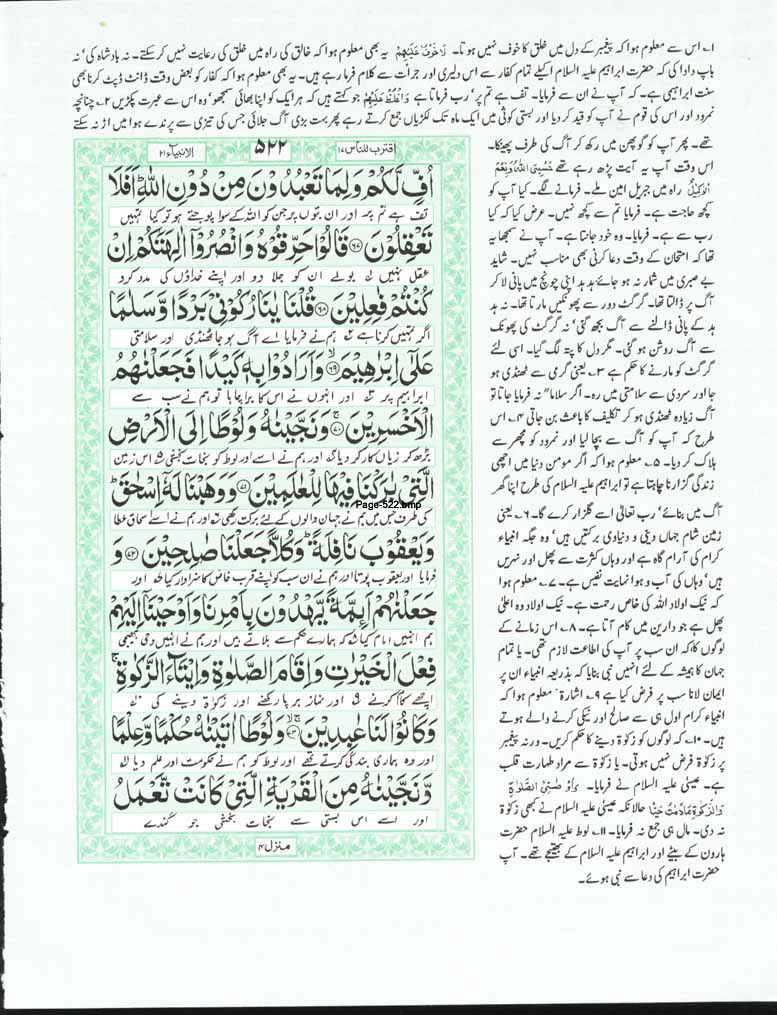 ۱۔ اس سے معلوم ہوا کہ پیغمبر کے دل میں خلق کا خوف نہیں ہوتا۔ لَا خَوْفٌ عَلَيْهِمْ یہ بھی معلوم ہوا کہ خالق کی راہ میں خلق کی رعایت نہیں کرسکتے۔ نہ بادشاہ کی' نہ
باپ دادا کی کہ حضرت ابراہیم علیہ السلام اکیلے تمام کفار سے اس دلیری اور جرأت سے کلام فرما رہے ہیں۔ یہ بھی معلوم ہوا کہ کفار کو بعض وقت ڈانٹ ڈپٹ کرنا بھی
سنت ابراہیمی ہے۔ کہ آپ نے ان سے فرمایا۔ تف ہے تم پر' رب فرماتا ہے وَاغْلُظْ عَلَيْهِمْ جو کہتے ہیں کہ ہر ایک کو اپنا بھائی سمجھو' وہ اس سے عبرت پکڑیں ۲۔ چنانچہ
نمرود اور اس کی قوم نے آپ کو قید کر دیا اور بستی کوثی میں ایک ماہ تک لکڑیاں جمع کرتے رہے پھر بہت بڑی آگ جلائی جس کی تیزی سے پرندے ہوا میں اڑ نہ سکتے
تھے۔ پھر آپ کو گوپھن میں رکھ کر آگ کی طرف پھینکا۔
اس وقت آپ یہ آیت پڑھ رہے تھے حَسْبِيَ اللّٰهُ وَنِعْمَ
الْوَكِيْلُ راہ میں جبریل امین ملے۔ فرمانے لگے۔ کیا آپ کو
کچھ حاجت ہے۔ فرمایا تم سے کچھ نہیں۔ عرض کیا کہ کیا
رب سے ہے۔ فرمایا۔ وہ خود جانتا ہے۔ آپ نے سمجھا یہ
تھا کہ امتحان کے وقت دعا کرنی بھی مناسب نہیں۔ شاید
بے صبری میں شمار نہ ہو جائے ہد ہد اپنی چونچ میں پانی لا کر
آگ پر ڈالتا تھا۔ گرگٹ دور سے پھونکیں مارتا تھا۔ نہ ہد
ہد کے پانی ڈالنے سے آگ بجھ گئی' نہ گرگٹ کی پھونک
سے آگ روشن ہو گئی۔ مگر دل کا پتہ لگ گیا۔ اسی لئے
گرگٹ کو مارنے کا حکم ہے ۳۔ یعنی گرمی سے ٹھنڈی ہو
جا اور سردی سے سلامتی میں رہ۔ اگر سلاما" نہ فرمایا جاتا تو
آگ زیادہ ٹھنڈی ہو کر تکلیف کا باعث بن جاتی ۴۔ اس
طرح کہ آپ کو آگ سے بچا لیا اور نمرود کو مچھر سے
ہلاک کر دیا۔ ۵۔ معلوم ہوا کہ اگر مومن دنیا میں اچھی
زندگی گزارنا چاہتا ہے تو ابراہیم علیہ السلام کی طرح اپنا گھر
آگ میں بنائے' رب تعالیٰ اسے گلزار کرے گا۔ ۶۔ یعنی
زمین شام جہاں دینی و دنیاوی برکتیں ہیں' وہ جگہ انبیاء
کرام کی آرام گاہ ہے اور وہاں کثرت سے پھل اور نہریں
ہیں' وہاں کی آب و ہوا نہایت نفیس ہے۔ ۷۔ معلوم ہوا
کہ نیک اولاد اللہ کی خاص رحمت ہے۔ نیک اولاد وہ اعلیٰ
پھل ہے جو دارین میں کام آتا ہے۔ ۸۔ اس زمانے کے
لوگوں کا کہ ان سب پر آپ کی اطاعت لازم تھی۔ یا تمام
جہان کا ہمیشہ کے لئے انہیں نبی بنایا کہ بذریعہ انبیاء ان پر
ایمان لانا سب پر فرض کیا ہے ۹۔ اشارۃً معلوم ہوا کہ
انبیاء کرام اول ہی سے صالح اور نیکی کرنے والے ہوتے
ہیں۔ ۱۰۔ کہ لوگوں کو زکوٰۃ دینے کا حکم کریں۔ ورنہ پیغمبر
پر زکوٰۃ فرض نہیں ہوتی۔ یا زکوٰۃ سے مراد طہارت قلب
ہے۔ عیسیٰ علیہ السلام نے فرمایا۔ وَاَوْصٰنِيْ بِالصَّلٰوةِ
وَالزَّكٰوةِ مَا دُمْتُ حَيًّا حالانکہ عیسیٰ علیہ السلام نے کبھی زکوٰۃ
نہ دی۔ مال ہی جمع نہ فرمایا۔ ۱۱۔ لوط علیہ السلام حضرت
ہارون کے بیٹے اور ابراہیم علیہ السلام کے بھتیجے تھے۔ آپ
حضرت ابراہیم کی دعا سے نبی ہوئے۔
اقترب للناس ۱۷ ۵۲۲ الانبیاء ۲۱
اُفٍّ لَّكُمْ وَلِمَا تَعْبُدُوْنَ مِنْ دُوْنِ اللّٰهِ ؕ اَفَلَا
تف ہے تم پر اور ان بتوں پر جن کو اللہ کے سوا پوجتے ہو تو کیا تمہیں
تَعْقِلُوْنَ ۶۷ قَالُوْا حَرِّقُوْهُ وَانْصُرُوْٓا اٰلِهَتَكُمْ اِنْ
عقل نہیں بولے ان کو جلا دو اور اپنے خداؤں کی مدد کرو
كُنْتُمْ فٰعِلِيْنَ ۶۸ قُلْنَا يٰنَارُ كُوْنِيْ بَرْدًا وَّسَلٰمًا
اگر تمہیں کرنا ہے ہم نے فرمایا اے آگ ہو جا ٹھنڈی اور سلامتی
عَلٰٓى اِبْرٰهِيْمَ ۶۹ وَاَرَادُوْا بِهٖ كَيْدًا فَجَعَلْنٰهُمُ
ابراہیم پر اور انہوں نے اس کا برا چاہا تو ہم نے سب سے
الْاَخْسَرِيْنَ ۷۰ وَنَجَّيْنٰهُ وَلُوْطًا اِلَى الْاَرْضِ
بڑھ کر زیاں کار کر دیا اور ہم نے اسے اور لوط کو نجات بخشی اس زمین
الَّتِيْ بٰرَكْنَا فِيْهَا لِلْعٰلَمِيْنَ ۷۱ وَوَهَبْنَا لَهٗٓ اِسْحٰقَ ؕ
Page-522.bmp
کی طرف جس میں ہم نے جہان والوں کے لئے برکت رکھی اور ہم نے اسے اسحاق عطا
وَيَعْقُوْبَ نَافِلَةً ؕ وَكُلًّا جَعَلْنَا صٰلِحِيْنَ ۷۲ وَ
فرمایا اور یعقوب پوتا اور ہم نے ان سب کو اپنے قرب خاص کا سزاوار کیا اور
جَعَلْنٰهُمْ اَئِمَّةً يَّهْدُوْنَ بِاَمْرِنَا وَاَوْحَيْنَآ اِلَيْهِمْ
ہم نے انہیں امام کیا کہ ہمارے حکم سے بلاتے ہیں اور ہم نے انہیں وحی بھیجی
فِعْلَ الْخَيْرٰتِ وَاِقَامَ الصَّلٰوةِ وَاِيْتَآءَ الزَّكٰوةِ ۚ
اچھے کام کرنے اور نماز برپا رکھنے اور زکوٰۃ دینے کی
وَكَانُوْا لَنَا عٰبِدِيْنَ ۷۳ وَلُوْطًا اٰتَيْنٰهُ حُكْمًا وَّعِلْمًا
اور وہ ہماری بندگی کرتے تھے اور لوط کو ہم نے حکومت اور علم دیا
وَّنَجَّيْنٰهُ مِنَ الْقَرْيَةِ الَّتِيْ كَانَتْ تَّعْمَلُ
اور اسے اس بستی سے نجات بخشی جو گندے
منزل ۴